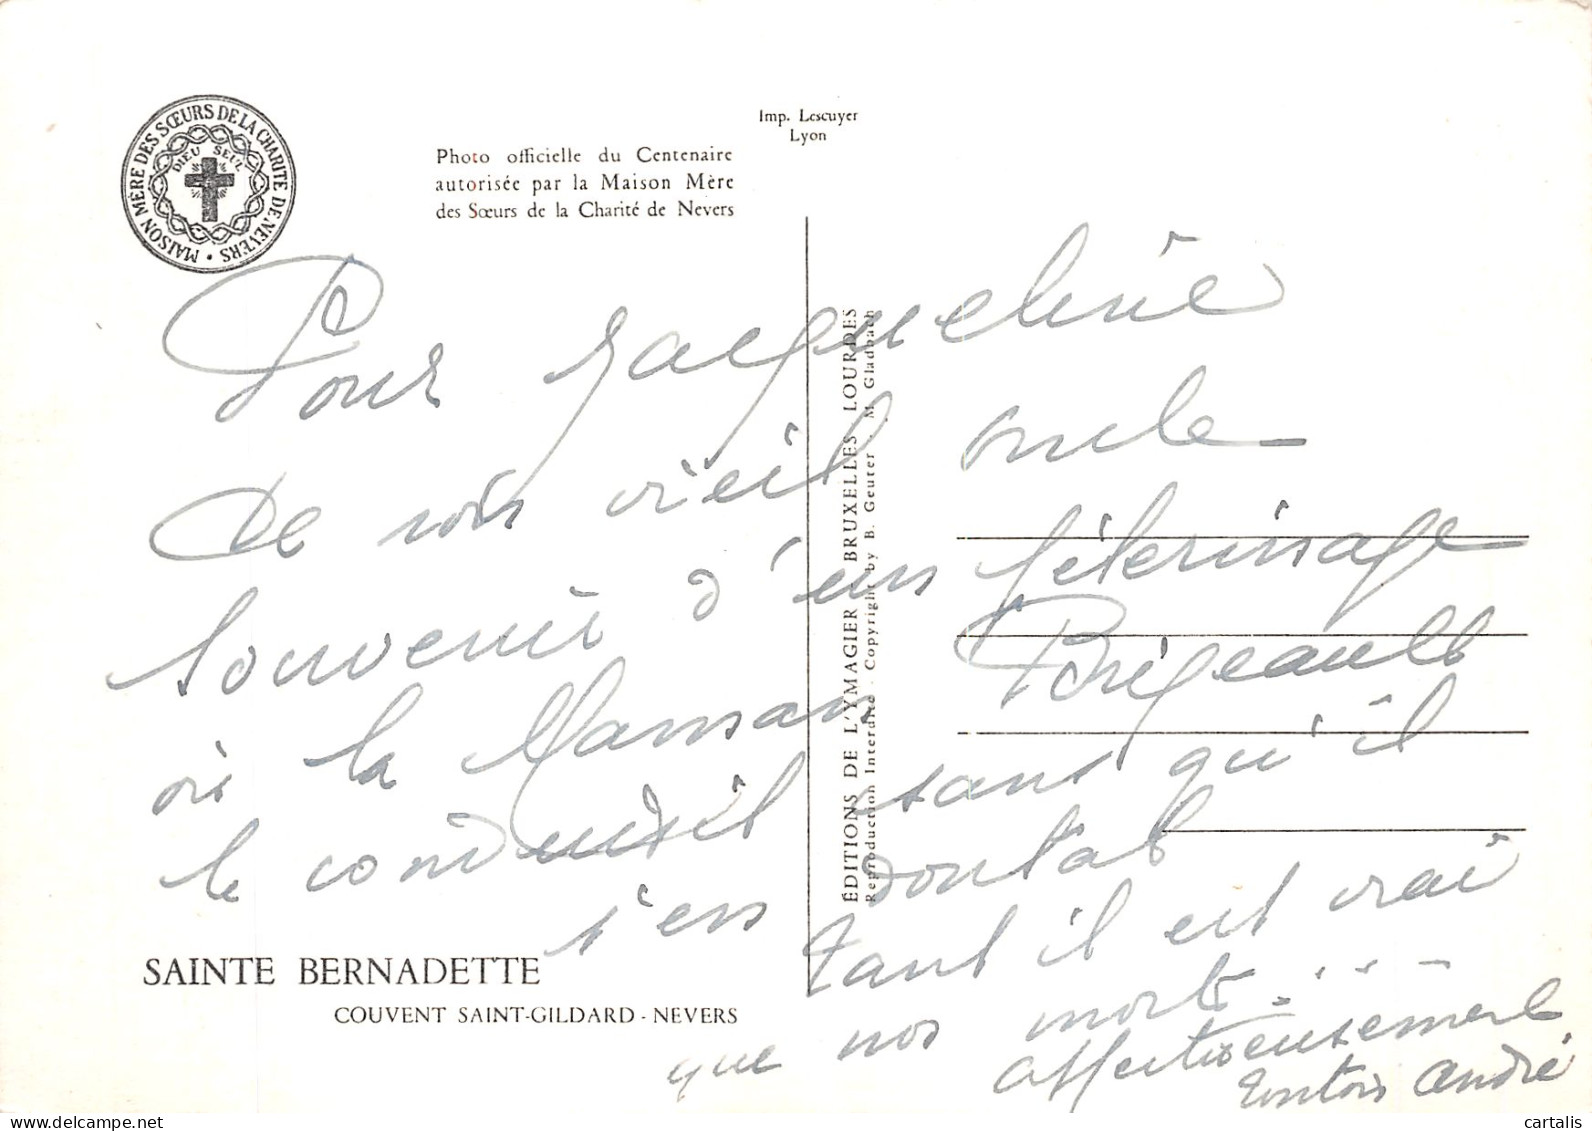 MAISON MÈRE DES SŒURS DE LA CHARITÉ DE NEVERS •
DIEU SEUL
Imp. Lescuyer
Lyon
Photo officielle du Centenaire
autorisée par la Maison Mère
des Sœurs de la Charité de Nevers
Pour Jacqueline
de son vieil oncle
souvenir d'un pèlerinage
où la Maman
le conduisit sans qu'il
s'en doutat
tant il est vrai
que nos morts
affectueusement
tonton André
ÉDITIONS DE L'YMAGIER BRUXELLES LOURDES
Reproduction Interdite - Copyright by B. Geurer . M. Gladbach
SAINTE BERNADETTE
COUVENT SAINT-GILDARD - NEVERS
cartalis